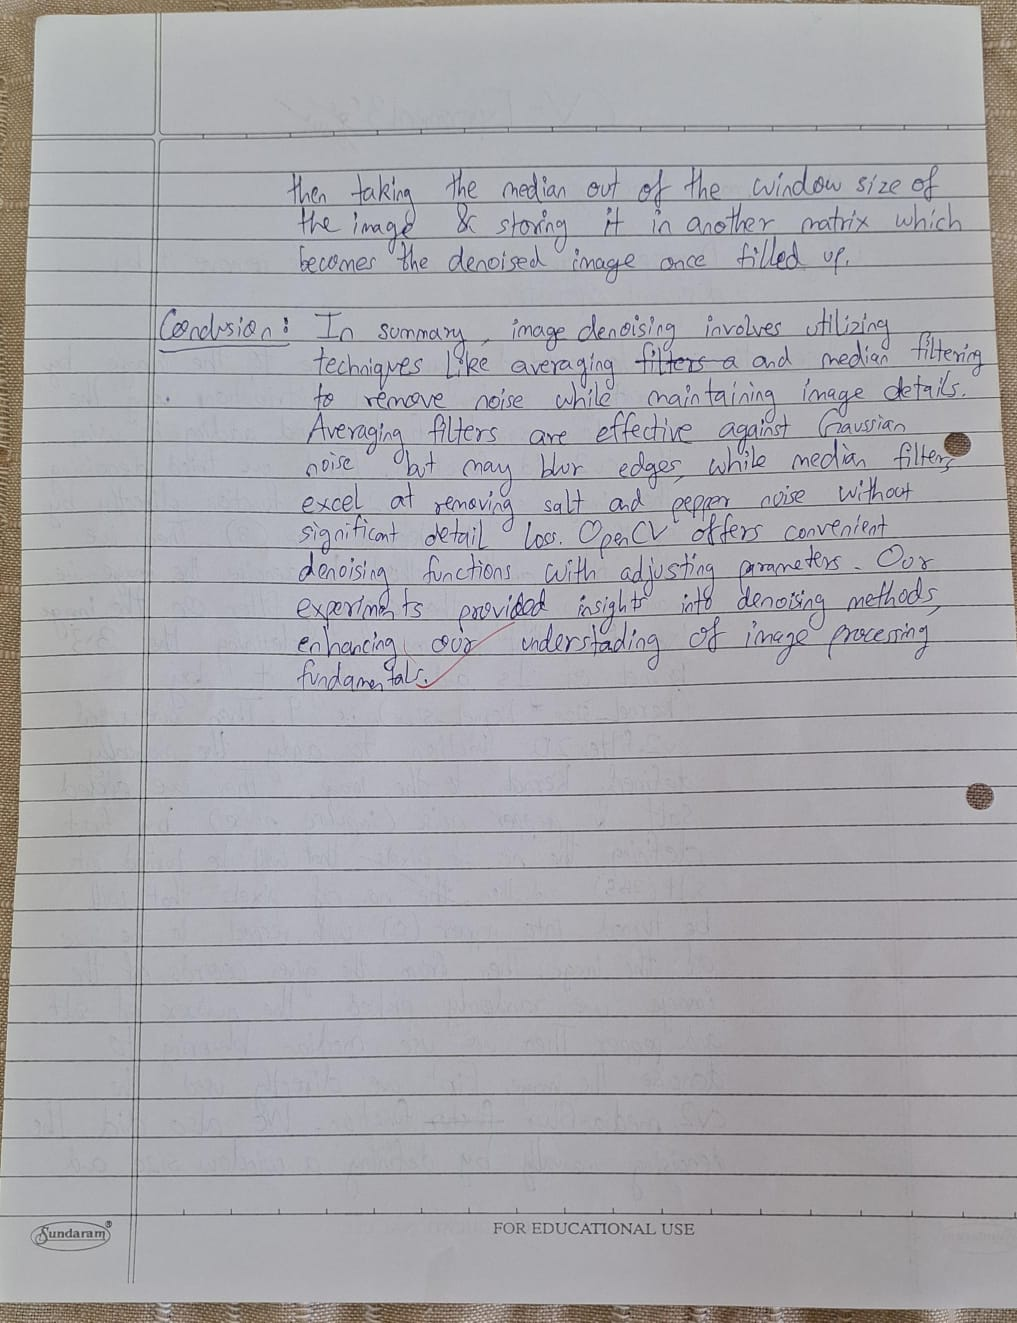 then taking the median out of the window size of
the image & storing it in another matrix which
becomes the denoised image once filled up.
Conclusion: In summary, image denoising involves utilizing
techniques like averaging filters a and median filtering
to remove noise while maintaining image details.
Averaging filters are effective against Gaussian
noise but may blur edges, while median filters
excel at removing salt and pepper noise without
significant detail loss. OpenCV offers convenient
denoising functions with adjusting parameters. Our
experiments provided insights into denoising methods,
enhancing our understading of image processing
fundamentals.
Sundaram®
FOR EDUCATIONAL USE